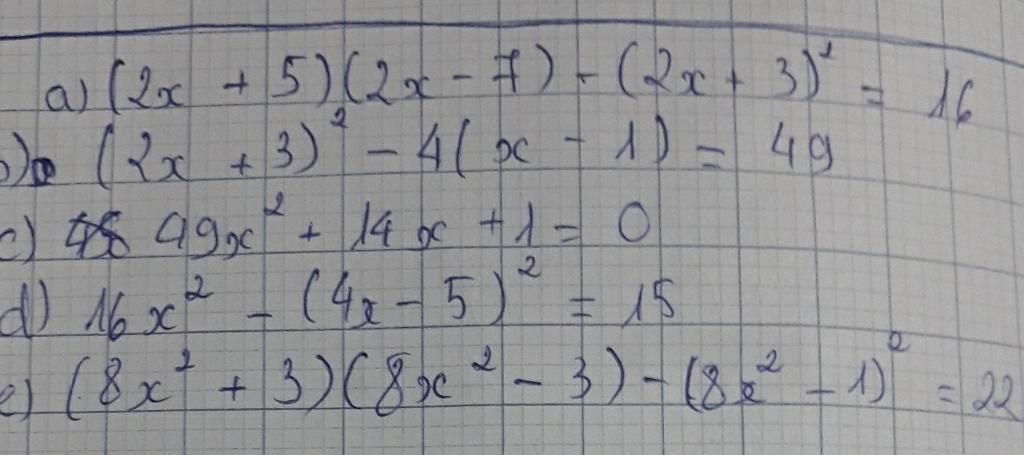 a) (2x + 5)(2x - 7) - (2x + 3)² = 16
b) (2x + 3)² - 4(x - 1) = 49
c) 49x² + 14x + 1 = 0
d) 16x² - (4x - 5)² = 15
e) (8x² + 3)(8x² - 3) - (8x² - 1)² = 22